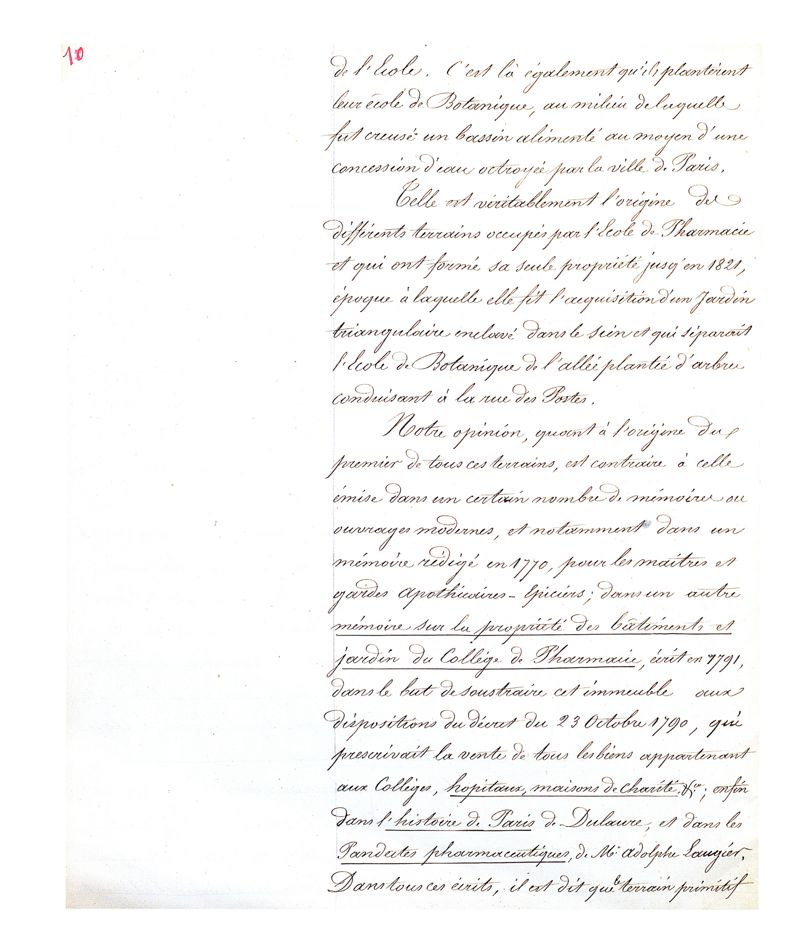 10
de l'Ecole. C'est là également qu'ils plantèrent
leur école de Botanique, au milieu de laquelle
fut creusé un bassin alimenté au moyen d'une
concession d'eau octroyée par la ville de Paris.
Telle est véritablement l'origine des
différents terrains occupés par l'Ecole de Pharmacie
et qui ont formé sa seule propriété jusqu'en 1821,
époque à laquelle elle fit l'acquisition d'un Jardin
triangulaire enclavé dans le sien et qui séparait
l'Ecole de Botanique de l'allée plantée d'arbres
conduisant à la rue des Postes.
Notre opinion, quant à l'origine du
premier de tous ces terrains, est contraire à celle
émise dans un certain nombre de mémoires ou
ouvrages modernes, et notamment dans un
mémoire rédigé en 1770, pour les maîtres et
gardes Apothicaires-Epiciers; dans un autre
mémoire sur la propriété des bâtiments et
jardin du Collège de Pharmacie, écrit en 1791,
dans le but de soustraire cet immeuble aux
dispositions du décret du 23 Octobre 1790, qui
prescrivait la vente de tous les biens appartenant
aux Collèges, hopitaux, maisons de charité, &ca; enfin
dans l'histoire de Paris de Dulaure, et dans les
Pandectes pharmaceutiques, de Mr Adolphe Laugier.
Dans tous ces écrits, il est dit que le terrain primitif